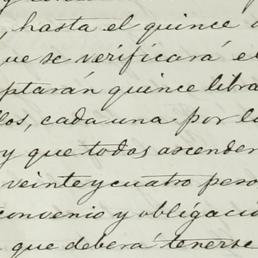 , hasta el quince
ue se verificará el
ptarán quince libra
los, cada una por la
y que todas ascender
veinte y cuatro peso
convenio y obligació
que deberá tenerse